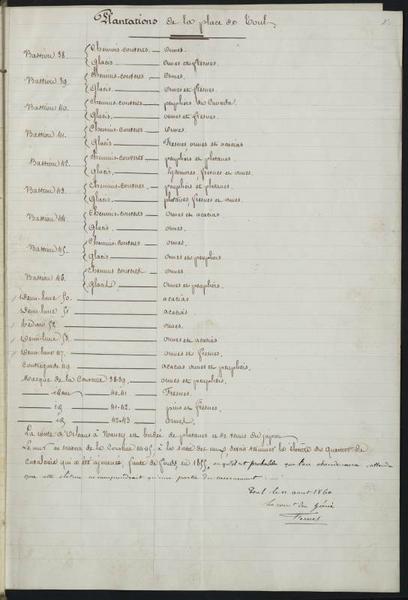 Plantations de la place de Toul
Bastion 38. Chemins couverts — Ormes.
Glacis — Ormes et fresnes.
Bastion 39. Chemins couverts — Ormes.
Glacis — Ormes et fresnes.
Bastion 40. Chemins couverts — peupliers du Canada.
Glacis — ormes et fresnes.
Bastion 41. Chemins couverts — Ormes.
Glacis — Fresnes ormes et acacias
Bastion 42. Chemins couverts — peupliers et platanes.
Glacis — fresnes et ormes.
Bastion 43. Chemins couverts — peupliers et platanes.
Glacis — platanes, fresnes et ormes.
Bastion 44. Chemins couverts — Ormes et acacias
Glacis — ormes.
Bastion 45. Chemins couverts — ormes.
Glacis — Ormes et peupliers
Bastion 46. Chemins couverts — ormes.
Glacis — Ormes et peupliers.
Demi-lune 50. — acacias
Demi-lune 51. — acacias
Redan 52. — ormes.
Demi-lune 53. — ormes et acacias
Demi-lune 47. — ormes et fresnes.
Contregarde 49 — acacias ormes et peupliers.
Masque de la Courtine 38-39. — ormes et peupliers.
40.41 — Fresnes.
id — 41-42. — pins et fresnes.
id — 42-43 — Ormes.
La route d'Orléans à Nancy est bordée de platanes et de vernis du japon.
Le mur en arrière de la Courtine
qui a été ajournée, faute de fonds, en 1855,
que cette clôture ne comprendrait qu'une partie du casernement
Toul le août 1860
du Génie